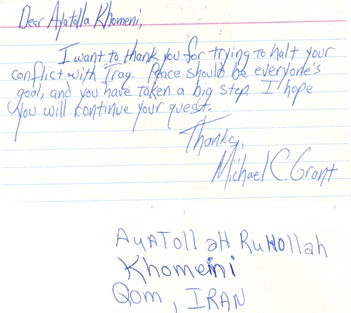 Dear Ayatolla Khomeni,
I want to thank you for trying to halt your
conflict with Iraq. Peace should be everyone's
goal, and you have taken a big step. I hope
you will continue your quest.
Thanks,
Michael C Grant
AyATollaH RuHollah
Khomeini
Qom, IRAN